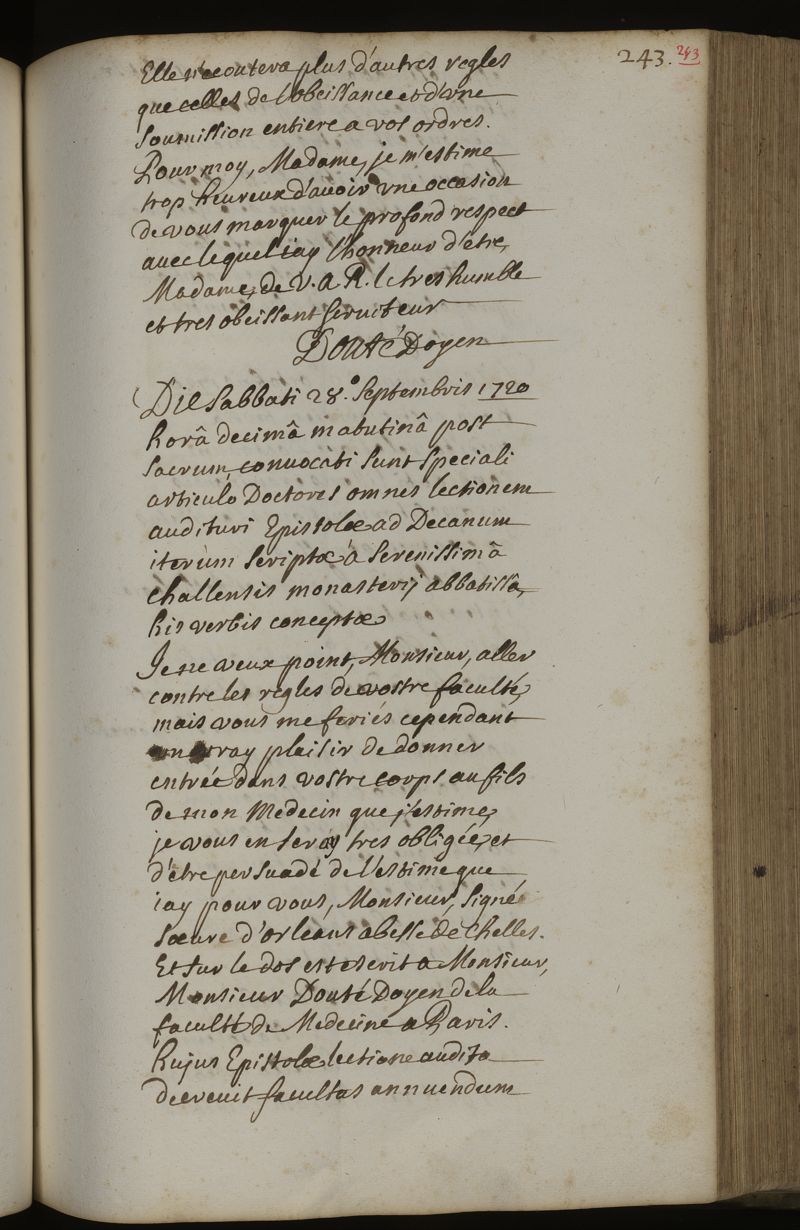 243. 243
Elle n'ecoutera plus d'autres regles
que celles de l'obeissance et d'une
soumission entiere a vos ordres.
Pour moy, Madame, je m'estime
trop heureux d'avoir une occasion
de vous marquer le profond respect
avec lequel j'ay l'honneur d'etre,
Madame, de V. A. R. le tres humble
et tres obeissant serviteur
Douté Doyen
Die Sabbati 28.° Septembris 1720
horâ decimâ matutinâ post
sacrum, convocati sunt speciali
articulo Doctores omnes lectionem
audituri Epistolæ ad Decanum
iterùm scriptæ à Serenissimâ
Challensis monasterij abbatissâ,
his verbis conceptæ
Je ne veux point, Monsieur, aller
contre les regles de vostre faculté,
mais vous me feriés cependant
un vray plaisir de donner
entrée dans vostre corps au fils
de mon Medecin que j'estime,
je vous en seray tres obligée, et
d'etre persuadé de l'estime que
j'ay pour vous, Monsieur, signé
soeure d'orleans abesse de Chelles.
Et sur le dos est escrit a Monsieur,
Monsieur Douté Doyen de la
faculté de Medecine a Paris.
hujus Epistolæ lectione audita
decrevit facultas annuendum